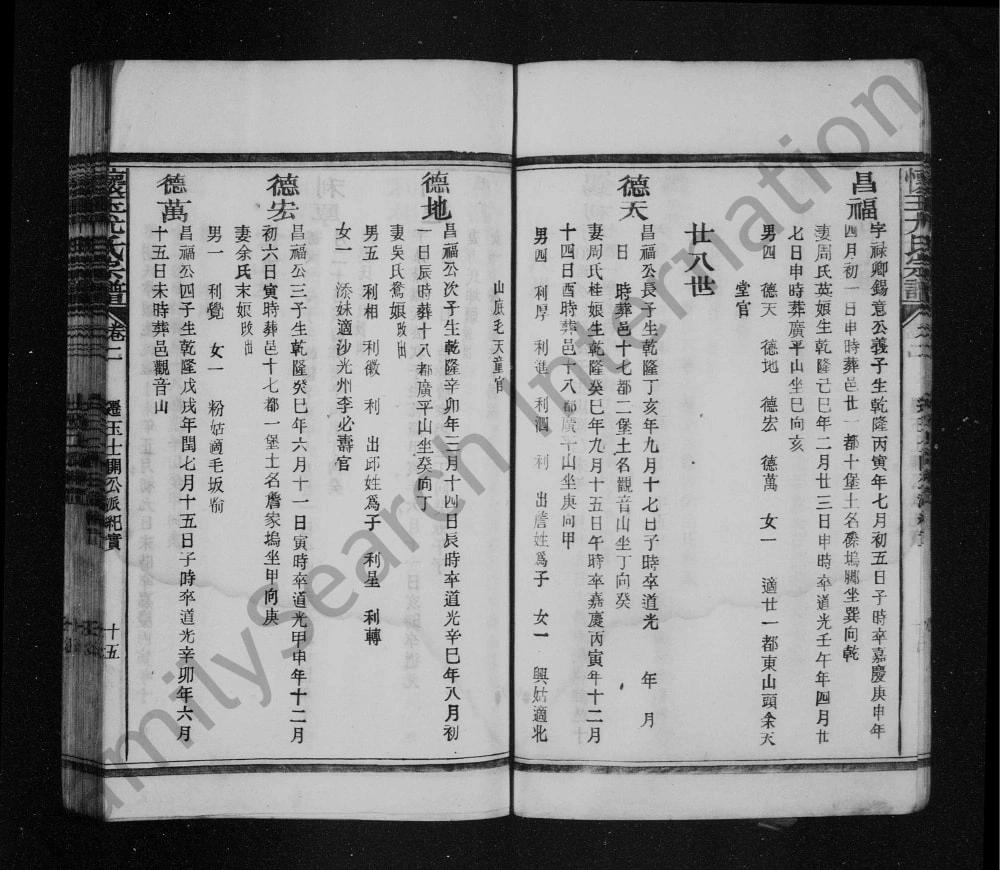 昌福
字禄卿錫意公義子生乾隆丙寅年七月初五日子時卒嘉慶庚申年
四月初一日申時葬邑廿一都十堡土名塢坐巽向乾
妻周氏英娘生乾隆己巳年二月廿三日申時卒道光壬午年四月廿
七日申時葬廣平山坐巳向亥
男四 德天 德地 德宏 德萬 女一 適廿一都東山頭余天
堂官
廿八世
德天
昌福公長子生乾隆丁亥年九月十七日子時卒道光 年 月
日 時葬邑十七都二堡土名觀音山坐丁向癸
妻周氏桂娘生乾隆癸巳年九月十五日午時卒嘉慶丙寅年十二月
十四日酉時葬邑十八都廣平山坐庚向甲
男四 利厚 利進 利泗 利 出詹姓爲子 女一 興姑適北
山底毛天童官
德地
昌福公次子生乾隆辛卯年三月十四日辰時卒道光辛巳年八月初
一日辰時葬十八都廣平山坐癸向丁
妻吳氏鴛娘改出
男五 利相 利徽 利 出邱姓爲子 利星 利轉
女一 添妹適沙光州李必壽官
德宏
昌福公三子生乾隆癸巳年六月十一日寅時卒道光甲申年十二月
初六日寅時葬邑十七都一堡土名詹家塢坐甲向庚
妻余氏末娘改出
男一 利覺 女一 粉姑適毛坂
德萬
昌福公四子生乾隆戊戌年閏七月十五日子時卒道光辛卯年六月
十五日未時葬邑觀音山
懷玉尤氏宗譜 卷二 遷玉士開公派紀實 十五
FamilySearch International